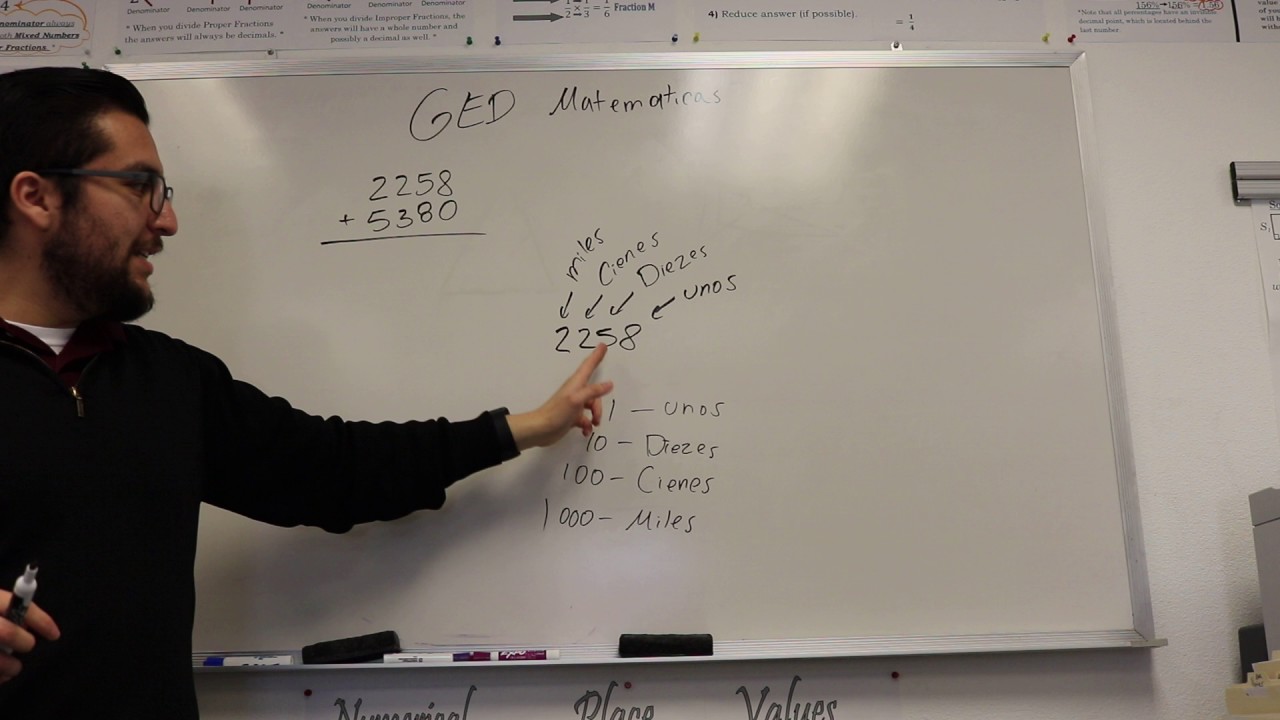 Denominator always
Mixed Numbers
Fractions "
Denominator Denominator Denominator
" When you divide Proper Fractions
the answers will always be decimals. "
Denominator Denominator Denominator
" When you divide Improper Fractions, the
answers will have a whole number and
possibly a decimal as well. "
Fraction M
4) Reduce answer (if possible).
= 1/4
"Note that all percentages have an invisible
decimal point, which is located behind the
last number.
GED Matematicas
2258
+ 5380
miles Cienes Diezes unos
2258
1 — unos
10 – Diezes
100 – Cienes
1000 – Miles
Numerical Place Values